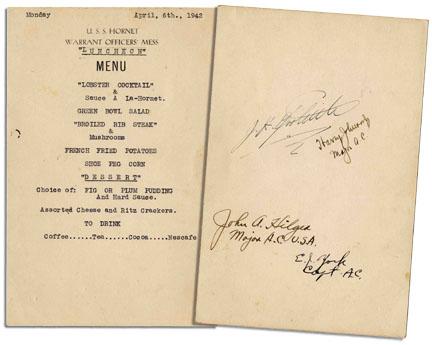 Monday April, 6th., 1942
U.S.S. HORNET
WARRANT OFFICERS' MESS
"LUNCHEON"
MENU
"LOBSTER COCKTAIL"
&
Sauce A La-Hornet.
GREEN BOWL SALAD
"BROILED RIB STEAK"
&
Mushrooms
FRENCH FRIED POTATOES
SHOE PEG CORN
"DESSERT"
Choice of: FIG OR PLUM PUDDING
And Hard Sauce.
Assorted Cheese and Ritz Crackers.
TO DRINK
Coffee.....Tea.....Cocoa.....Nescafe
Harry Johnson
Major A.C.
John A. Hilger
Major A.C. U.S.A.
E.J. York
Capt A.C.